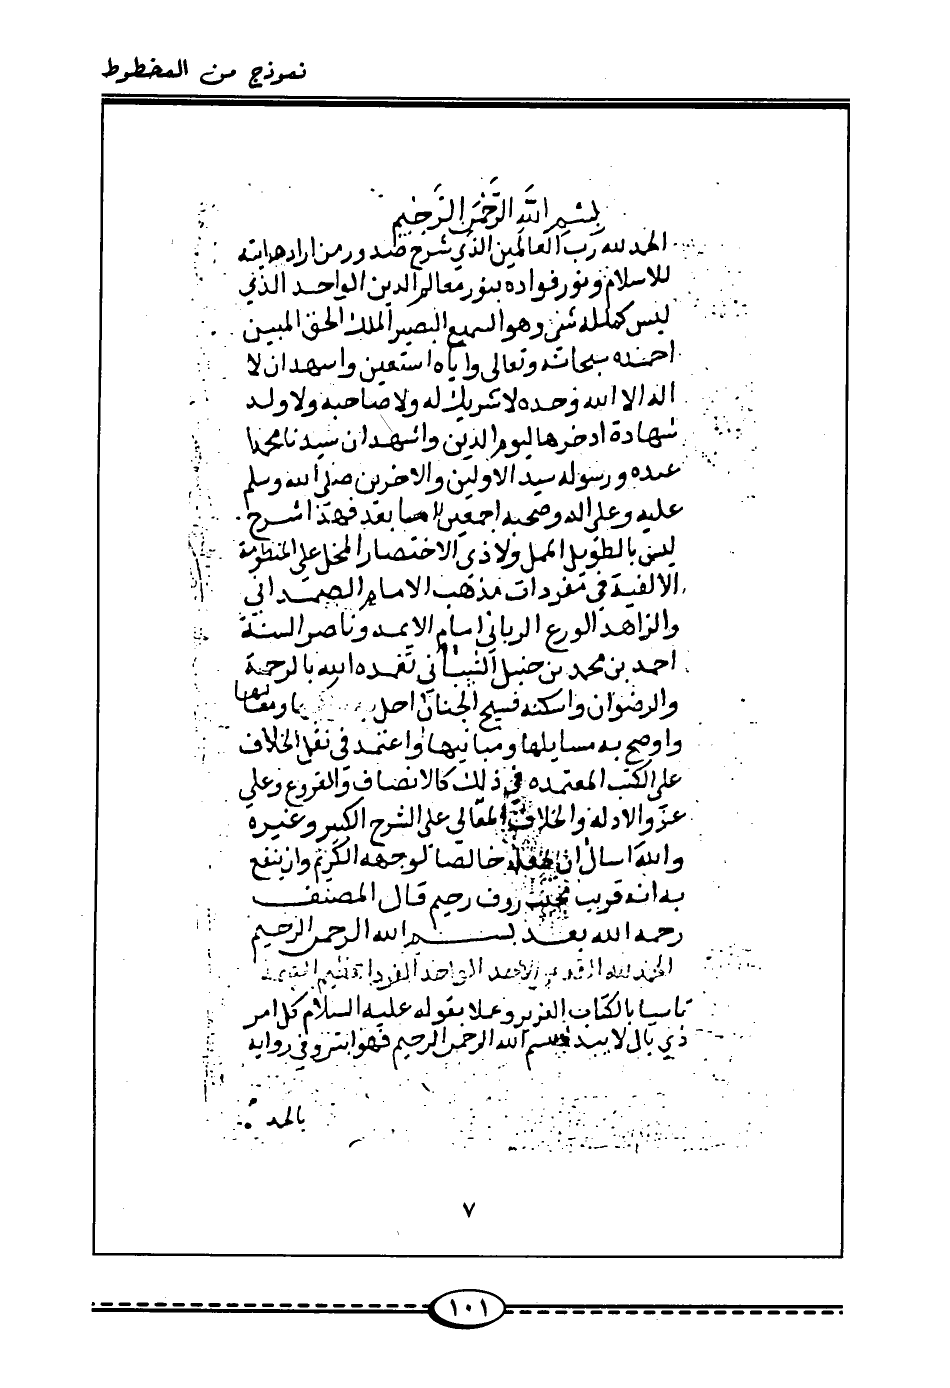 نموذج من المخطوط
بسم الله الرحمن الرحيم
الحمد لله رب العالمين الذي شرح صدور من اراد هدايته
للاسلام ونور فواده بنور معالم الدين الواحد الذي
ليس كمثله شئ وهو السميع البصير الملك الحق المبين
احمده سبحانه وتعالى واياه استعين واشهد ان لا
اله الا الله وحده لا شريك له ولا صاحبه ولا ولد
شهادة ادخرها ليوم الدين واشهد ان سيدنا محمدا
عبده ورسوله سيد الاولين والاخرين صلى الله وسلم
عليه وعلى اله وصحبه اجمعين اما بعد فهذا شرح
ليس بالطويل الممل ولا ذي الاختصار المخل على المنظومة
الالفية في مفردات مذهب الامام الصمداني
والزاهد الورع الرباني امام الايمه وناصر السنة
احمد بن محمد بن حنبل الشيباني تغمده الله بالرحمة
والرضوان واسكنه فسيح الجنان احل به ومعانيها
واوضح به مسايلها ومبانيها واعتمد في نقل الخلاف
على الكتب المعتمده في ذلك كالانصاف والفروع وعلي
عزو الادله والخلاف العالي على الشرح الكبير وغيره
والله اسال ان يجعله خالصا لوجهه الكريم وان ينفع
به انه قريب مجيب روف رحيم قال المصنف
رحمه الله بعد بسم الله الرحمن الرحيم
الحمد لله القديم الاحد الواحد الفرد
تاسيا بالكتاب العزيز وعملا بقوله عليه السلام كل امر
ذي بال لا يبد ببسم الله الرحمن الرحيم فهو ابتر وفي روايه
بالحمد
٧
١٠١